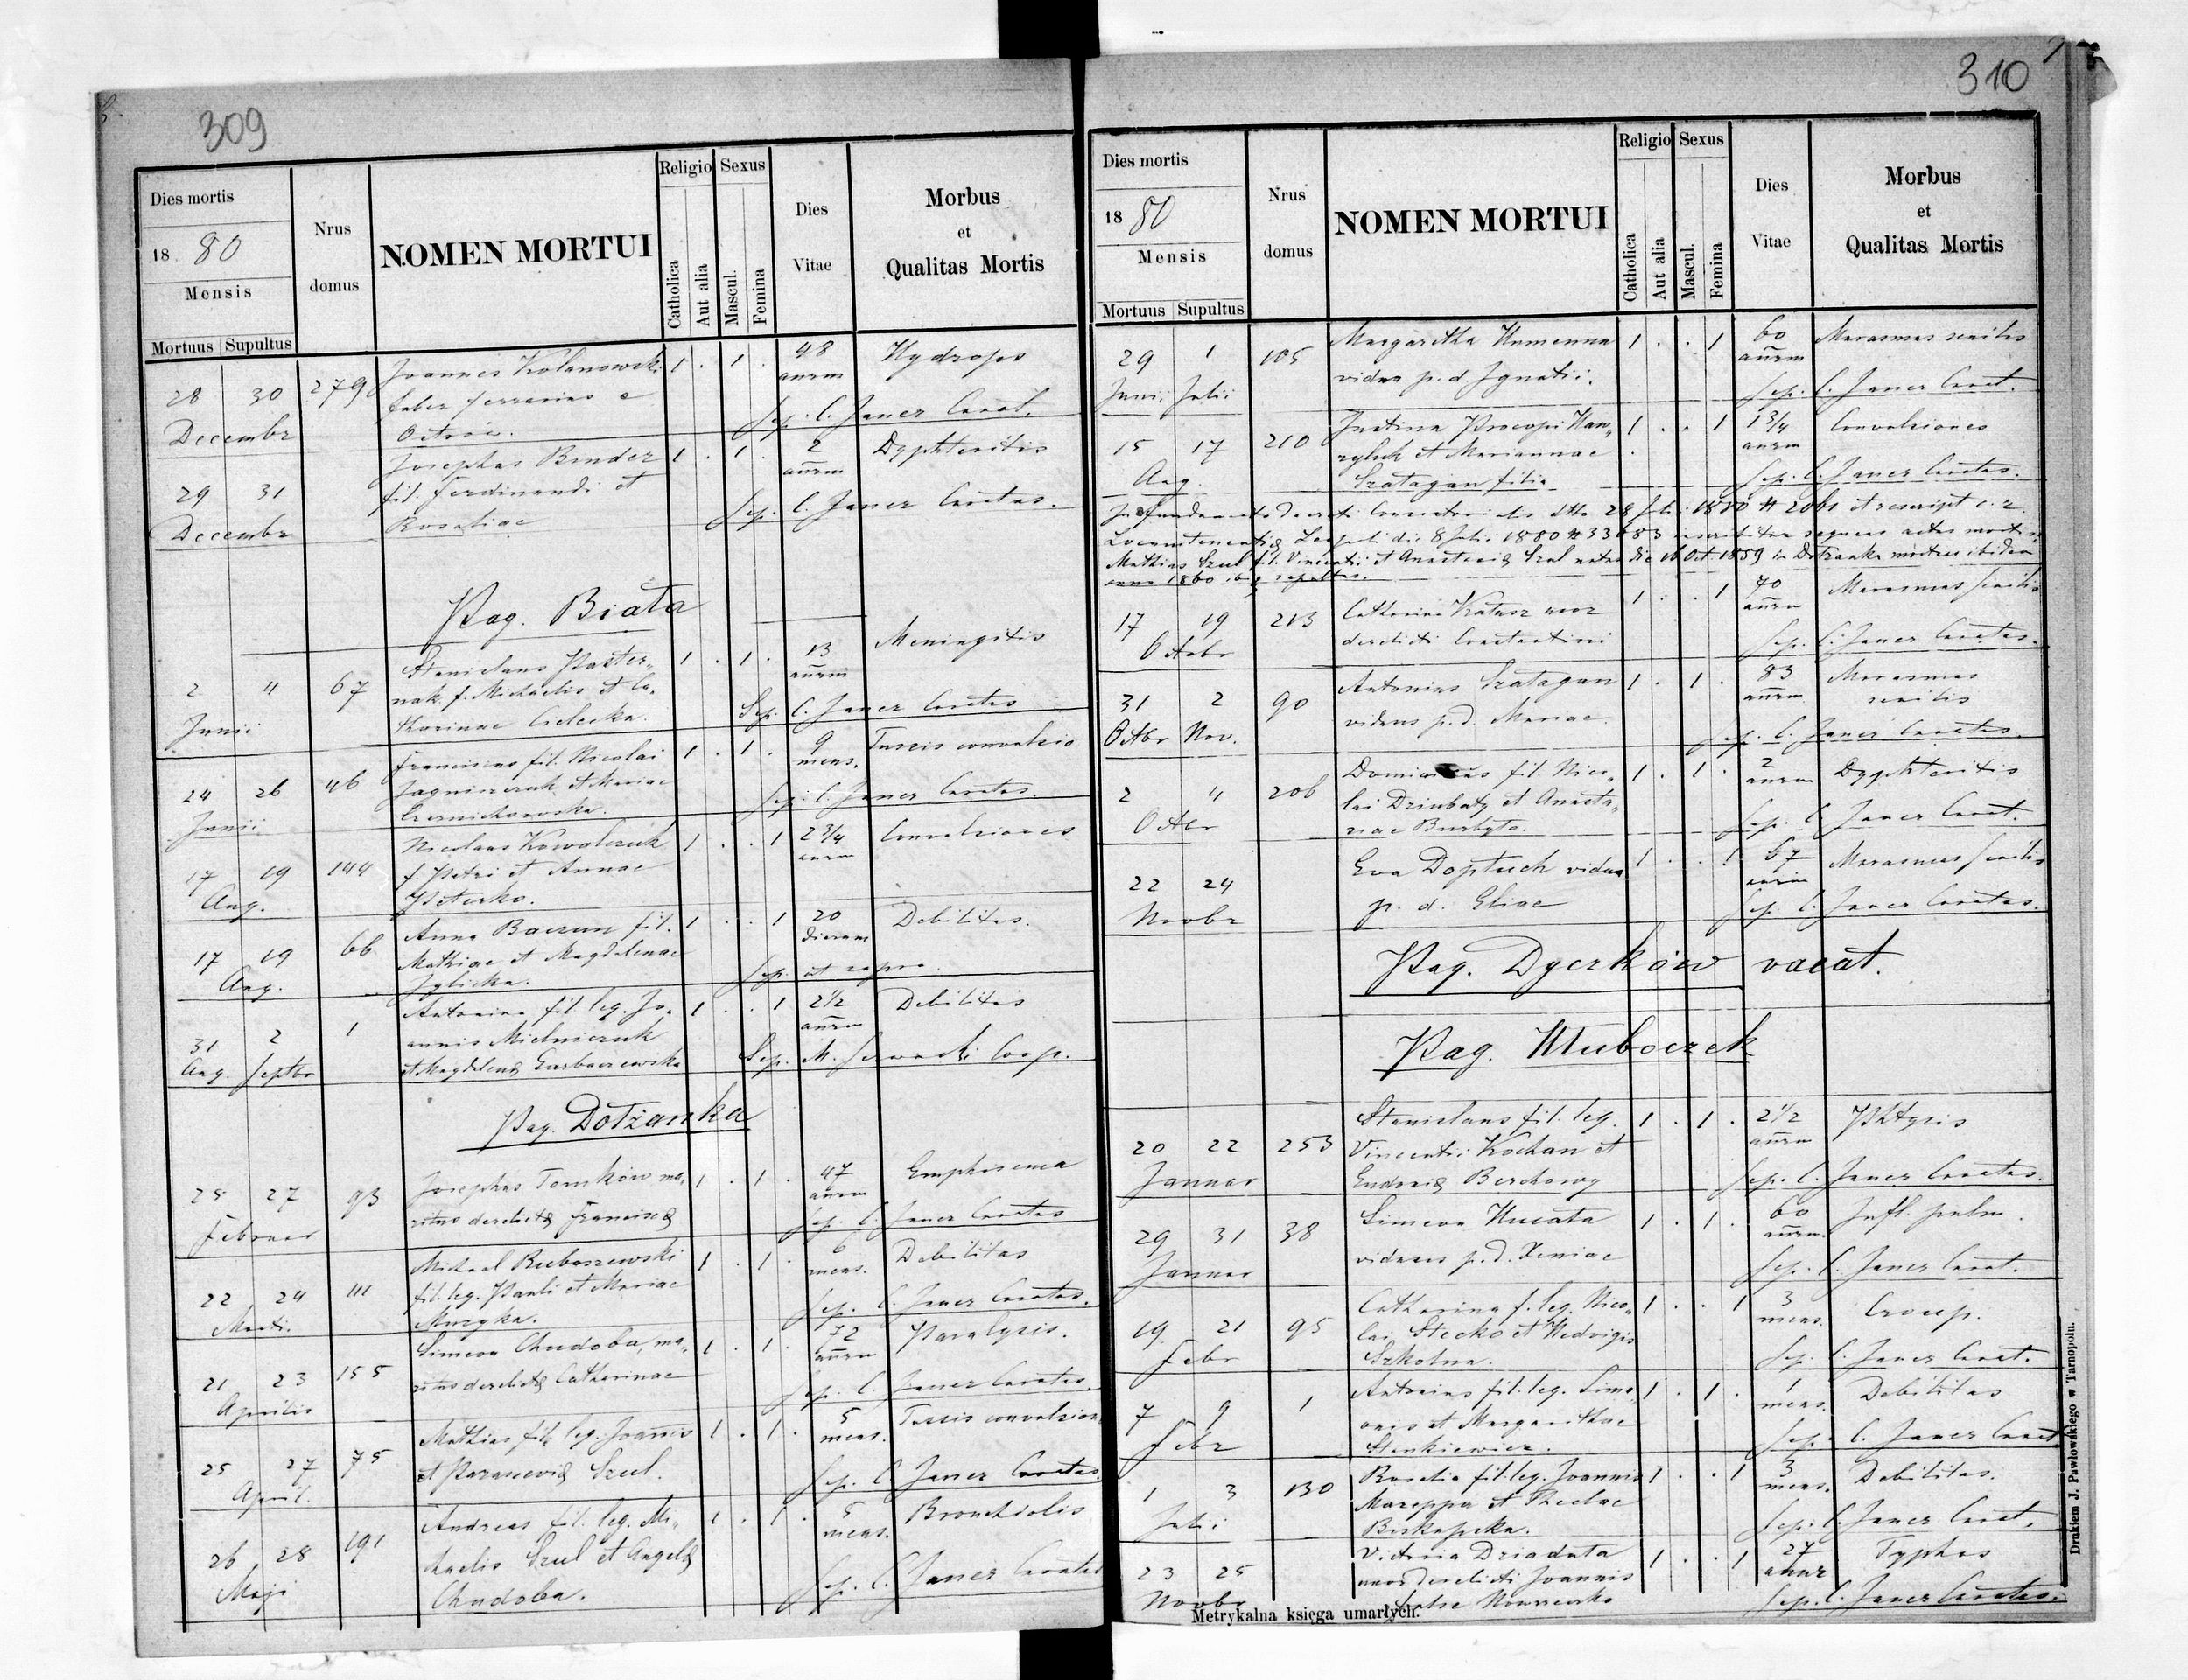 309
Dies mortis
18 80
Mensis
Mortuus Supultus
Nrus
domus
NOMEN MORTUI
Religio
Catholica
Aut alia
Sexus
Mascul.
Femina
Dies
Vitae
Morbus
et
Qualitas Mortis
28 30 279 Joannes Kolanowski 1 . 1 . 48 Hydrops
faber ferrarius e annm
Decembr Sep. C. Janer Coest.
29 31 Josephus Binder 1 . 1 . 2 Dyphteritis
fil. Ferdinandi et annm
Decembr Rosaliae Sep. C. Janer
Pag. Biała
2 4 67 Stanislaus Paster- 1 . 1 . 13 Meningitis
nak f. Michaelis et Ca- annm
Junii tharinae Cielecka. Sep. C. Janer
24 26 46 Franciscus fil. Nicolai 1 . 1 . 9 Tussis convulsio
et Mariae mens.
Junii Sep. C. Janer
17 19 144 Nicolaus Kowalczuk 1 . . 1 2 3/4 Convulsiones
f. Petri et Annae annm
Aug. Peterko.
17 19 66 Anna Baczun fil. 1 . . 1 20 Debilitas.
Mathiae et Magdalenae dierum
Aug. Sep. ut supra
31 2 1 Antonina fil. leg. Jo- 1 . . 1 2 1/2 Debilitas
annis Mielniczuk annm
Aug. Septbr et Magdalenae Garbaczewska Sep. M. Coop.
Pag. Dołżanka
25 27 93 Josephus Tomków ma- 1 . 1 . 47 Emphisema
ritus derelictae Franciscae annm
Februar Sep. C. Janer
22 24 111 Michael Buboszewski 1 . 1 . 6 Debilitas
fil. leg. Pauli et Mariae mens.
Marti. Muzyka. Sep. C. Janer
21 23 155 Simeon Chudoba, ma- 1 . 1 . 72 Paralysis.
ritus derelictae Catharinae annm
Aprilis Sep. C. Janer
25 27 75 Mathias fil. leg. Joannis 1 . 1 . 5 Tussis convulsion
et Parasceviae Szul. mens.
April. Sep. C. Janer
26 28 191 Andreas fil. leg. Mi- 1 . 1 . 5 Bronchiolis
chaelis Szul et Angelae mens.
Maji Chudoba. Sep. C. Janer
310
Dies mortis
18 80
Mensis
Mortuus Supultus
Nrus
domus
NOMEN MORTUI
Religio
Catholica
Aut alia
Sexus
Mascul.
Femina
Dies
Vitae
Morbus
et
Qualitas Mortis
29 1 105 Margaretha Humenna 1 . . 1 60 Marasmus senilis
vidua p. d. Ignatii. annm
Junii Julii Sep. C. Janer
15 17 210 Justina Procopi Han- 1 . . 1 1 3/4 Convulsiones
et Mariannae annm
Aug. Szatagan filia Sep. C. Janer
28 Juli 1880 et rescript c. r.
die 8 Juli 1880 # 33683 sequens actus mortis
Mathias Szul fil. Vincentii et Anastasiae Szul natus die Oct 1859 in Dołżanka mortuus ibidem
anno 1860 ibique sepultus.
17 19 213 Catharina Kratusz uxor 1 . . 1 70 Marasmus senilis
derelicti Constantini annm
Octobr Sep. C. Janer
31 2 90 Antonius Szatagan 1 . 1 . 83 Marasmus
viduus p. d. Mariae. annm senilis
Octbr Nov. Sep. C. Janer
2 4 206 fil. Nico- 1 . 1 . 2 Dyphteritis
lai Dziubaty et Anasta- annm
Octbr siae Sep. C. Janer
22 24 Eva Doptuch vidua 1 . . 1 67 Marasmus senilis
p. d. Eliae annm
Novbr Sep. C. Janer
Pag. Dyczków vacat.
Pag. Hluboczek
20 22 253 Stanislaus fil. leg. 1 . 1 . 2 1/2 Phtysis
Vincentii Kochan et annm
Januar Eudoxiae Berchowy Sep. C. Janer
29 31 38 Simeon Hucata 1 . 1 . 60 Infl. pulm.
viduus p. d. Xeniae annm.
Januar Sep. C. Janer
19 21 95 Catharina f. leg. Nico- 1 . . 1 3 Croup.
lai Stecko et Hedvigis mens.
Febr Szkolna. Sep. C. Janer
7 9 1 Antonius fil. leg. Sime- 1 . 1 . 1 Debilitas
onis et Margarithae mens.
Febr Stankiewicz. Sep. C. Janer
1 3 130 Rosalia fil. leg. Joannis 1 . . 1 3 Debilitas.
Mazeppa et Theclae mens.
Juli Biskupska. Sep. C. Janer
23 25 Victoria Dziadata 1 . . 1 27 Typhus
uxor derelicti Joannis annr
Novbr Sep. C. Janer
Metrykalna księga umarłych.
Drukiem J. Pawłowskiego w Tarnopolu.